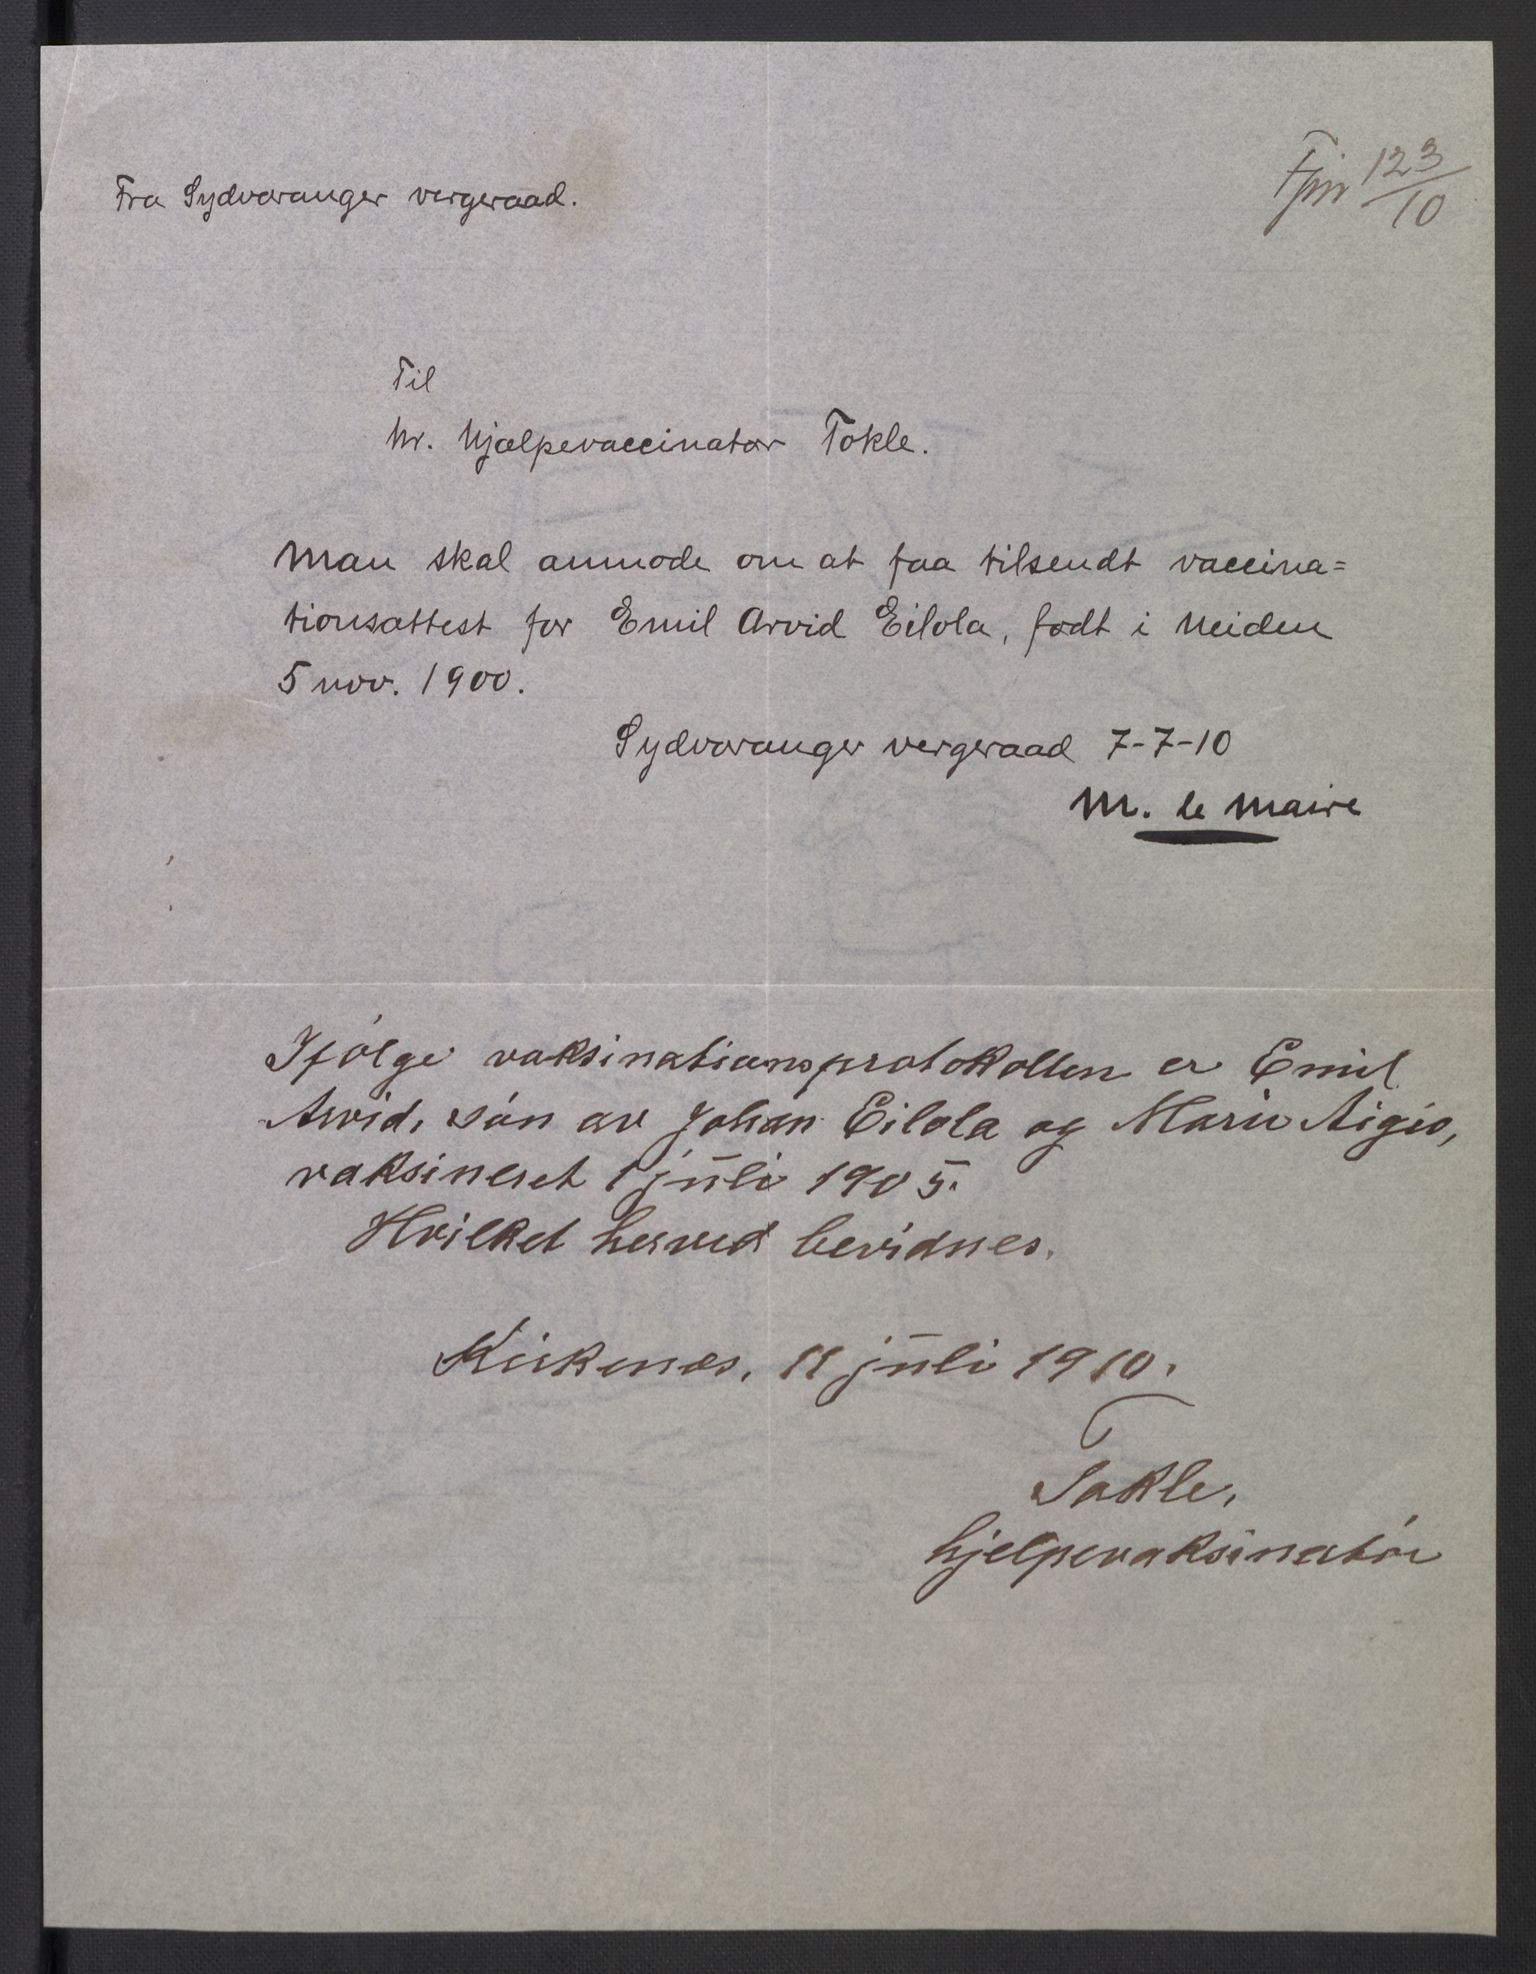 Fra Sydvaranger vergeraad.
123/10
Til
Hr. Hjælpevaccinatør Tokle.
Man skal anmode om at faa tilsendt vaccina=
tionsattest for Emil Arvid Eilola, født i Neiden
5 nov. 1900.
Sydvaranger vergeraad 7-7-10
M. le Maire
Ifølge vaksinationsprotokollen er Emil
Arvid, søn av Johan Eilola og Marie Aigio,
vaksineret 1 juli 1905.
Hvilket herved bevidnes.
Kirkenes, 11 juli 1910.
Tokle,
hjelpevaksinatør